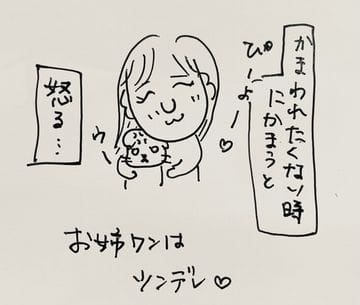 かまわれたくない時
にかまうと
ぴーよ♡
ウー
怒る…
お姉ワンは
ツンデレ♡